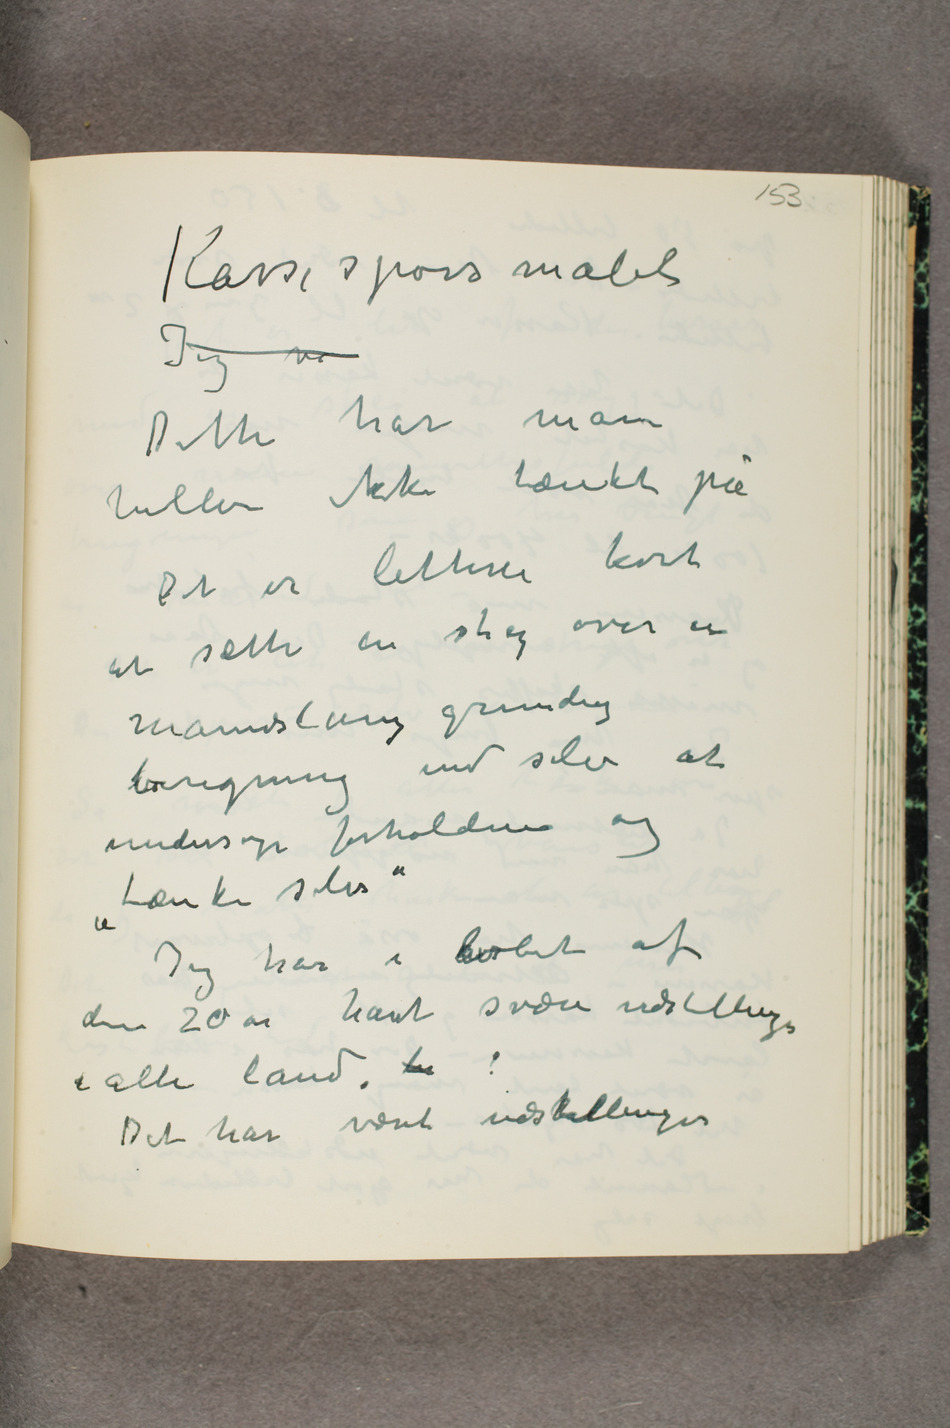 153
Karsespørsmålet
Jeg vi
Dette har man
heller ikke tænkt på
Det er lettere kort
at sætte en streg over en
mandslang grundig
beregning end selv at
undersøge forholdene og
„tænke selv“
Jeg har i løbet af
den 20 år havt svære udstillinger
i alle land.
Det har vært udstillinger